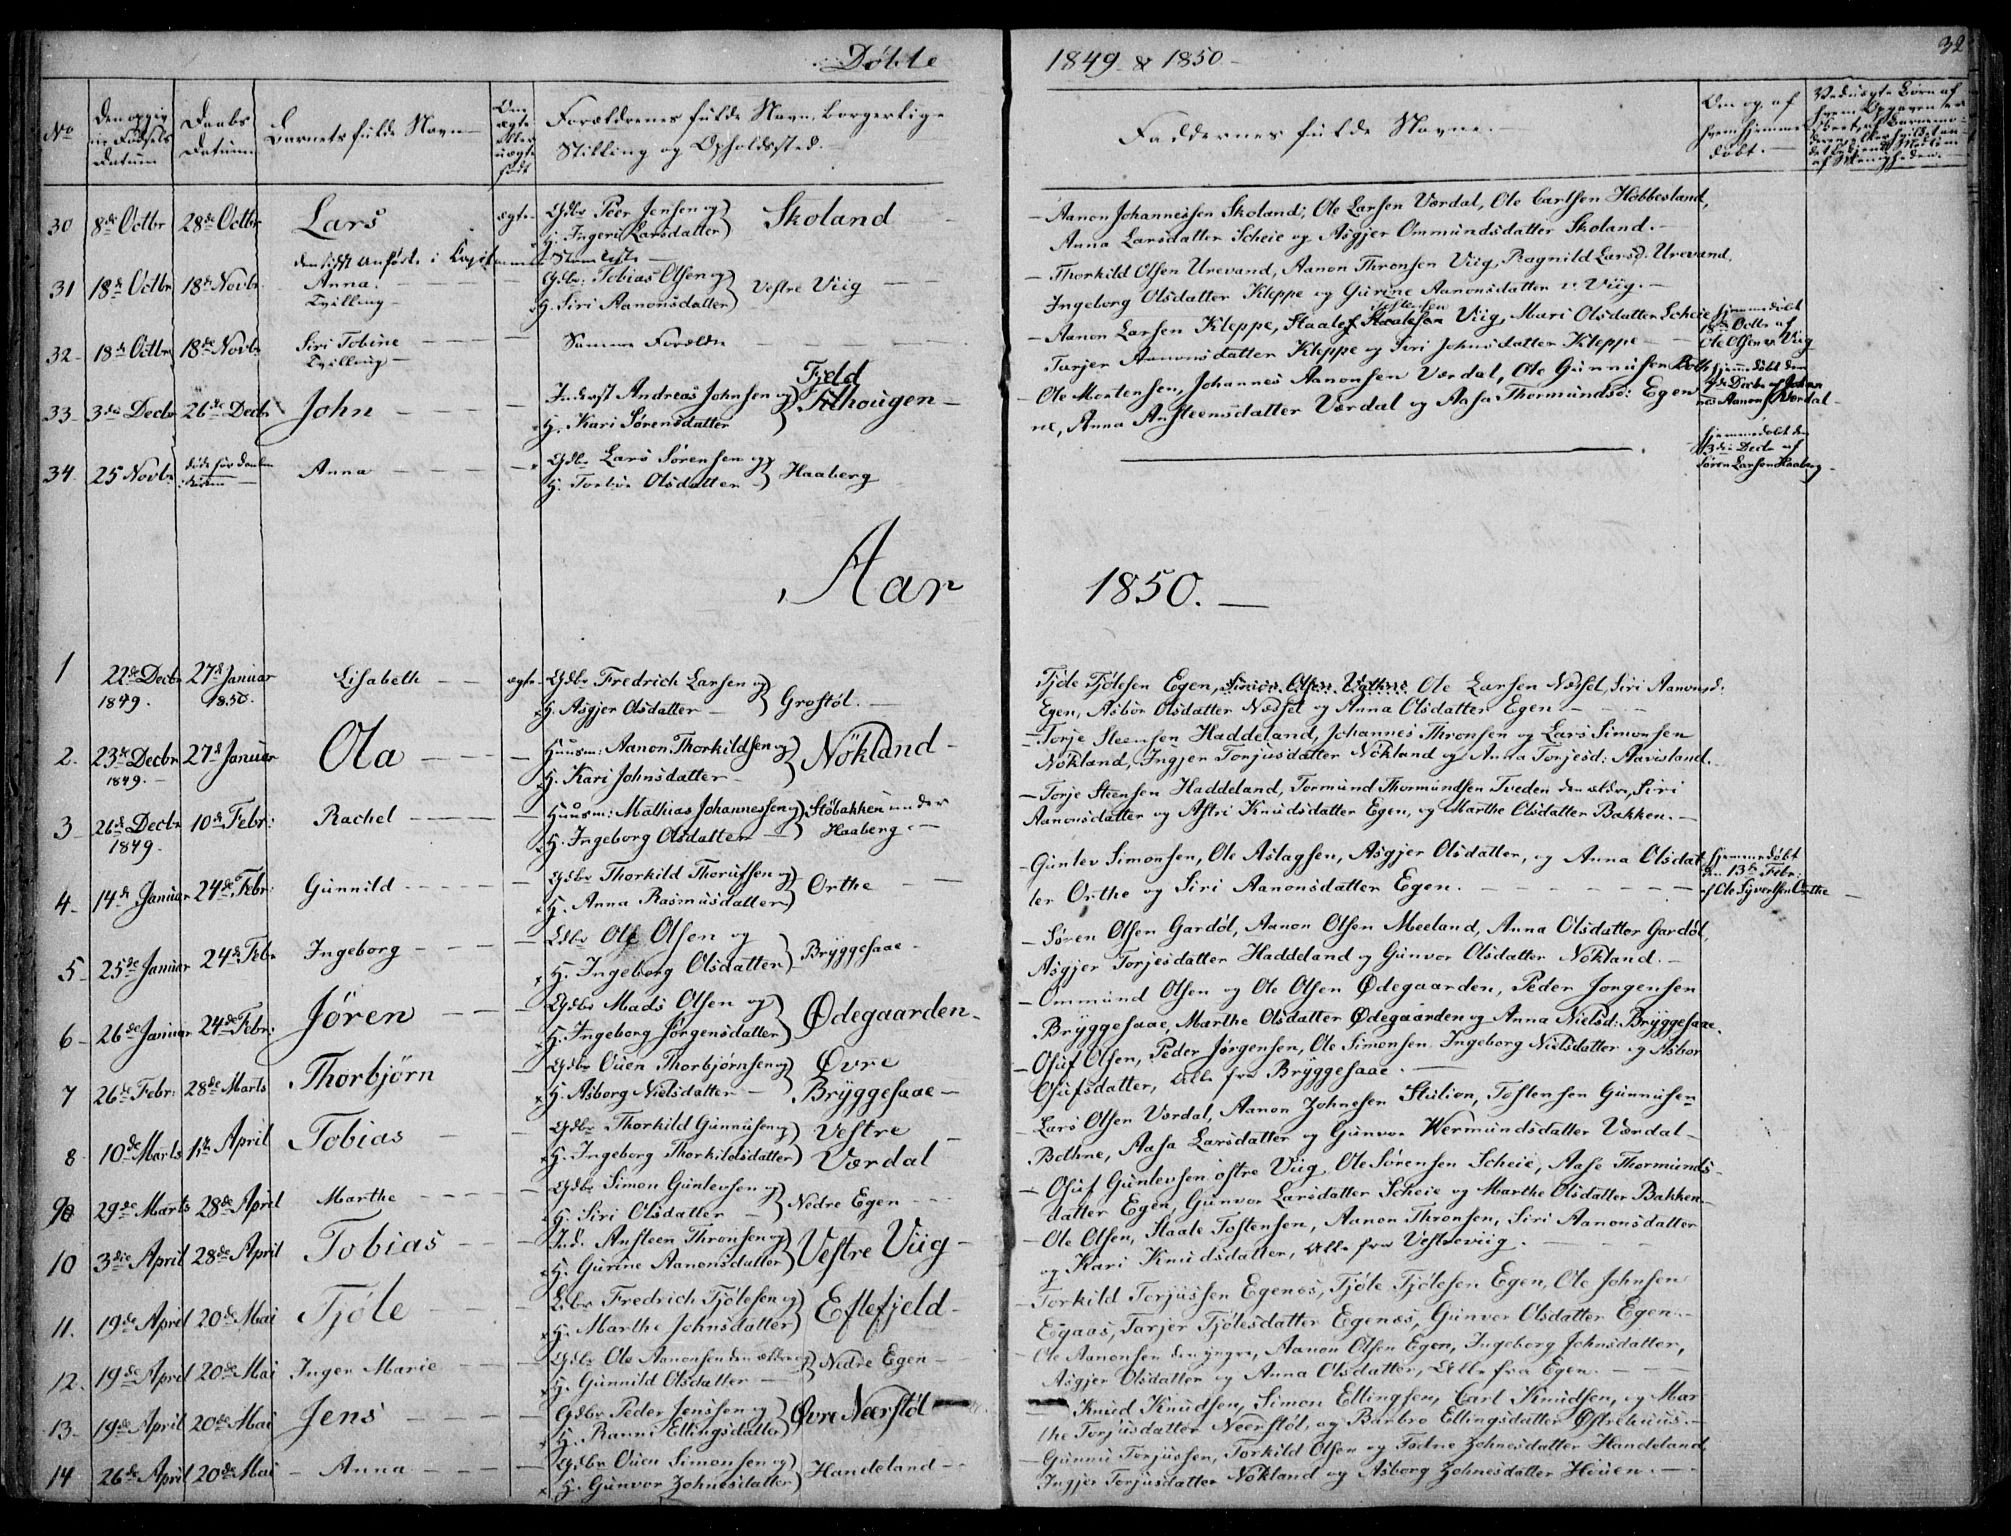 Døbte
1849 & 1850
32
No
Datum
Daabs Datum
Barnets fulde Navn
Om ægte eller uægte født
Forældrenes fulde Navn, borgerlige
Stilling og Opholdssted.
Faddernes fulde Navne.
Om og af hvem hjemmedøbt.
30 8de Octbr 28de Octbr Lars ægte Gdbr Peer Jensen og
H. Ingeri Larsdatter Skoland
Aanon Johannessen Skoland, Ole Larsen Værdal, Ole Carlsen Hobbesland,
Anna Larsdatter Scheie og Asgjer Ommundsdatter Skoland.
31 18de Octbr 18de Novbr Anna. Gdbr. Tobias Olsen og
Tvilling H. Siri Aanonsdatter Vestre Viig
Thorkild Olsen Urevand, Aanon Thronsen Viig, Ragnild Larsd. Urevand,
Ingeborg Olsdatter Kleppe og Gurine Aanonsdatter v. Viig.
32 18de Octbr 18de Novbr Siri Tobine Samme Forældre
Tvilling
Aanon Larsen Kleppe, Staale Tostensen Viig, Mari Olsdatter Scheie
Tarjer Aanonsdatter Kleppe og Siri Johnsdatter Kleppe
Hjemmedøbt
18de Octbr af
Ole Olsen v. Viig
33 3die Decbr 26de Decbr John Inderst Andreas Johnsen og
H. Kari Sørensdatter Fjeld
Ole Mortensen, Johannes Aanonsen Værdal, Ole Gunnusen Both
ne, Anna Ansteensdatter Værdal og Aasa Thormundsd: Egen
Hjemmedøbt den
4de Decbr af Johan
nes Aanonsen Værdal
34 25 Novbr døde før Daaben Anna Gdbr Lars Sørensen og
H. Torbor Olsdatter Haaberg
Hjemmedøbt den
3die Decbr af
Søren Larsen Haaberg
Aar 1850.
1 22de Decbr 27de Januar Lisabeth ægte Gdbr Fredrich Larsen og
1849. 1850. H. Asgjer Olsdatter Grostøl.
Tjøle Tjølesen Egen, Ole Larsen Næsset, Siri Aanonsd.
Egen, Asbor Olsdatter Næsset og Anna Olsdatter Egen
2. 23de Decbr 27de Januar Ola Huusm: Aanon Thorkildsen og
1849. H. Kari Johnsdatter Nökland
Torje Steensen Haddeland, Johannes Thronsen og Lars Simonsen
Nökland, Ingjer Torjusdatter Nökland og Anna Torjesd: Aavesland.
3 26de Decbr 10de Febr: Rachel Huusm: Mathias Johannessen og Støbakken under
1849. H. Ingeborg Olsdatter Haaberg.
Torje Steensen Haddeland, Tormund Thormundsen Tveden den ældre, Siri
Aanonsdatter og Astri Knudsdatter Egen, og Marthe Olsdatter Bakken.
4 14de Januar 24de Febr: Gunnild Gdbr Thorkild Thorufsen og
H. Anna Rasmusdatter Orthe
Gunlev Simonsen, Ole Aslagsen, Asgjer Olsdatter, og Anna Olsdat
ter Orthe og Siri Aanonsdatter Egen.
Hjemmedøbt
den 13de Febr:
af Ole Syvertsen Orthe
5 25de Januar 24de Febr Ingeborg Gdbr Ole Olsen og
H. Ingeborg Olsdatter Bryggesaae
Søren Olsen Gardøl, Aanon Olsen Meeland, Anna Olsdatter Gardøl,
Asgjer Torjesdatter Haddeland og Gunvor Olsdatter Nökland.
6 26de Januar 24de Febr: Jören Gdbr Mads Olsen og
H. Ingeborg Jørgensdatter Ødegaarden
Ommund Olsen og Ole Olsen Ødegaarden, Peder Jørgensen
Bryggesaae, Marthe Olsdatter Ødegaarden og Anna Nielsd: Bryggesaae.
7 26de Febr: 28de Marts Thorbjörn Gdbr Ouen Thorbjørnsen og Øvre
H. Asborg Nielsdatter Bryggesaae
Osuf Olsen, Peder Jørgensen, Ole Simonsen, Ingeborg Nielsdatter og Asbor
Osufsdatter, Alle fra Bryggesaae.
8 10de Marts 1ste April Tobias Gdbr Thorkild Gunnusen og Vestre
H. Ingeborg Thorkildsdatter Værdal
Lars Olsen Værdal, Aanon Zohnesen Stulien, Tostensen Gunnusen
Bothne, Aasa Larsdatter og Gunvor Wermundsdatter Værdal
9 29de Marts 28de April Marthe Gdbr Simon Gunlevsen og
H. Siri Olsdatter Nedre Egen
Osuf Gunlevsen østre Viig, Ole Sørensen Scheie, Aase Thormunds
datter Egen, Gunvor Larsdatter Scheie og Marthe Olsdatter Bakken
10 3die April 28de April Tobias Ind. Ansteen Thronsen og
H. Gurine Aanonsdatter Vestre Viig
Ole Olsen, Staale Tostensen, Aanon Thronsen, Siri Aanonsdatter
og Kari Knudsdatter, Alle fra Vestreviig.
11. 19de April 20de Mai Tjøle Gdbr Fredrich Tjølesen og
H. Marthe Johnsdatter Eftefjeld
Torkild Torjussen Egenes, Tjøle Tjølesen Egen, Ole Johnsen
Egaas, Tarjer Tjølesdatter Egenæs, Gunvor Olsdatter Egen.
12. 19de April 20de Mai Inger Marie Gdbr Ole Aanonsen den ældre og
H. Gunnild Olsdatter Nedre Egen
Ole Aanonsen den yngre, Aanon Olsen Egen, Ingeborg Johnsdatter,
Asgjer Olsdatter og Anna Olsdatter, Alle fra Egen.
13. 19de April 20de Mai Jens Gdbr Peder Jenssen og
H. Ranni Ellingsdatter Øvre Neerstøl
Knud Knudsen, Simon Ellingsen, Carl Knudsen, og Mar
the Torjusdatter Neerstøl, og Barbro Ellingsdatter Østrehuus.
14 26de April 20de Mai Anna Gdbr Ouen Simonsen og
H. Gunvor Zohnesdatter Handeland
Gunnu Torjussen, Torkild Olsen og Todne Zohnesdatter Handeland,
Ingjer Torjusdatter Nökland og Asborg Zohnesdatter Houen.